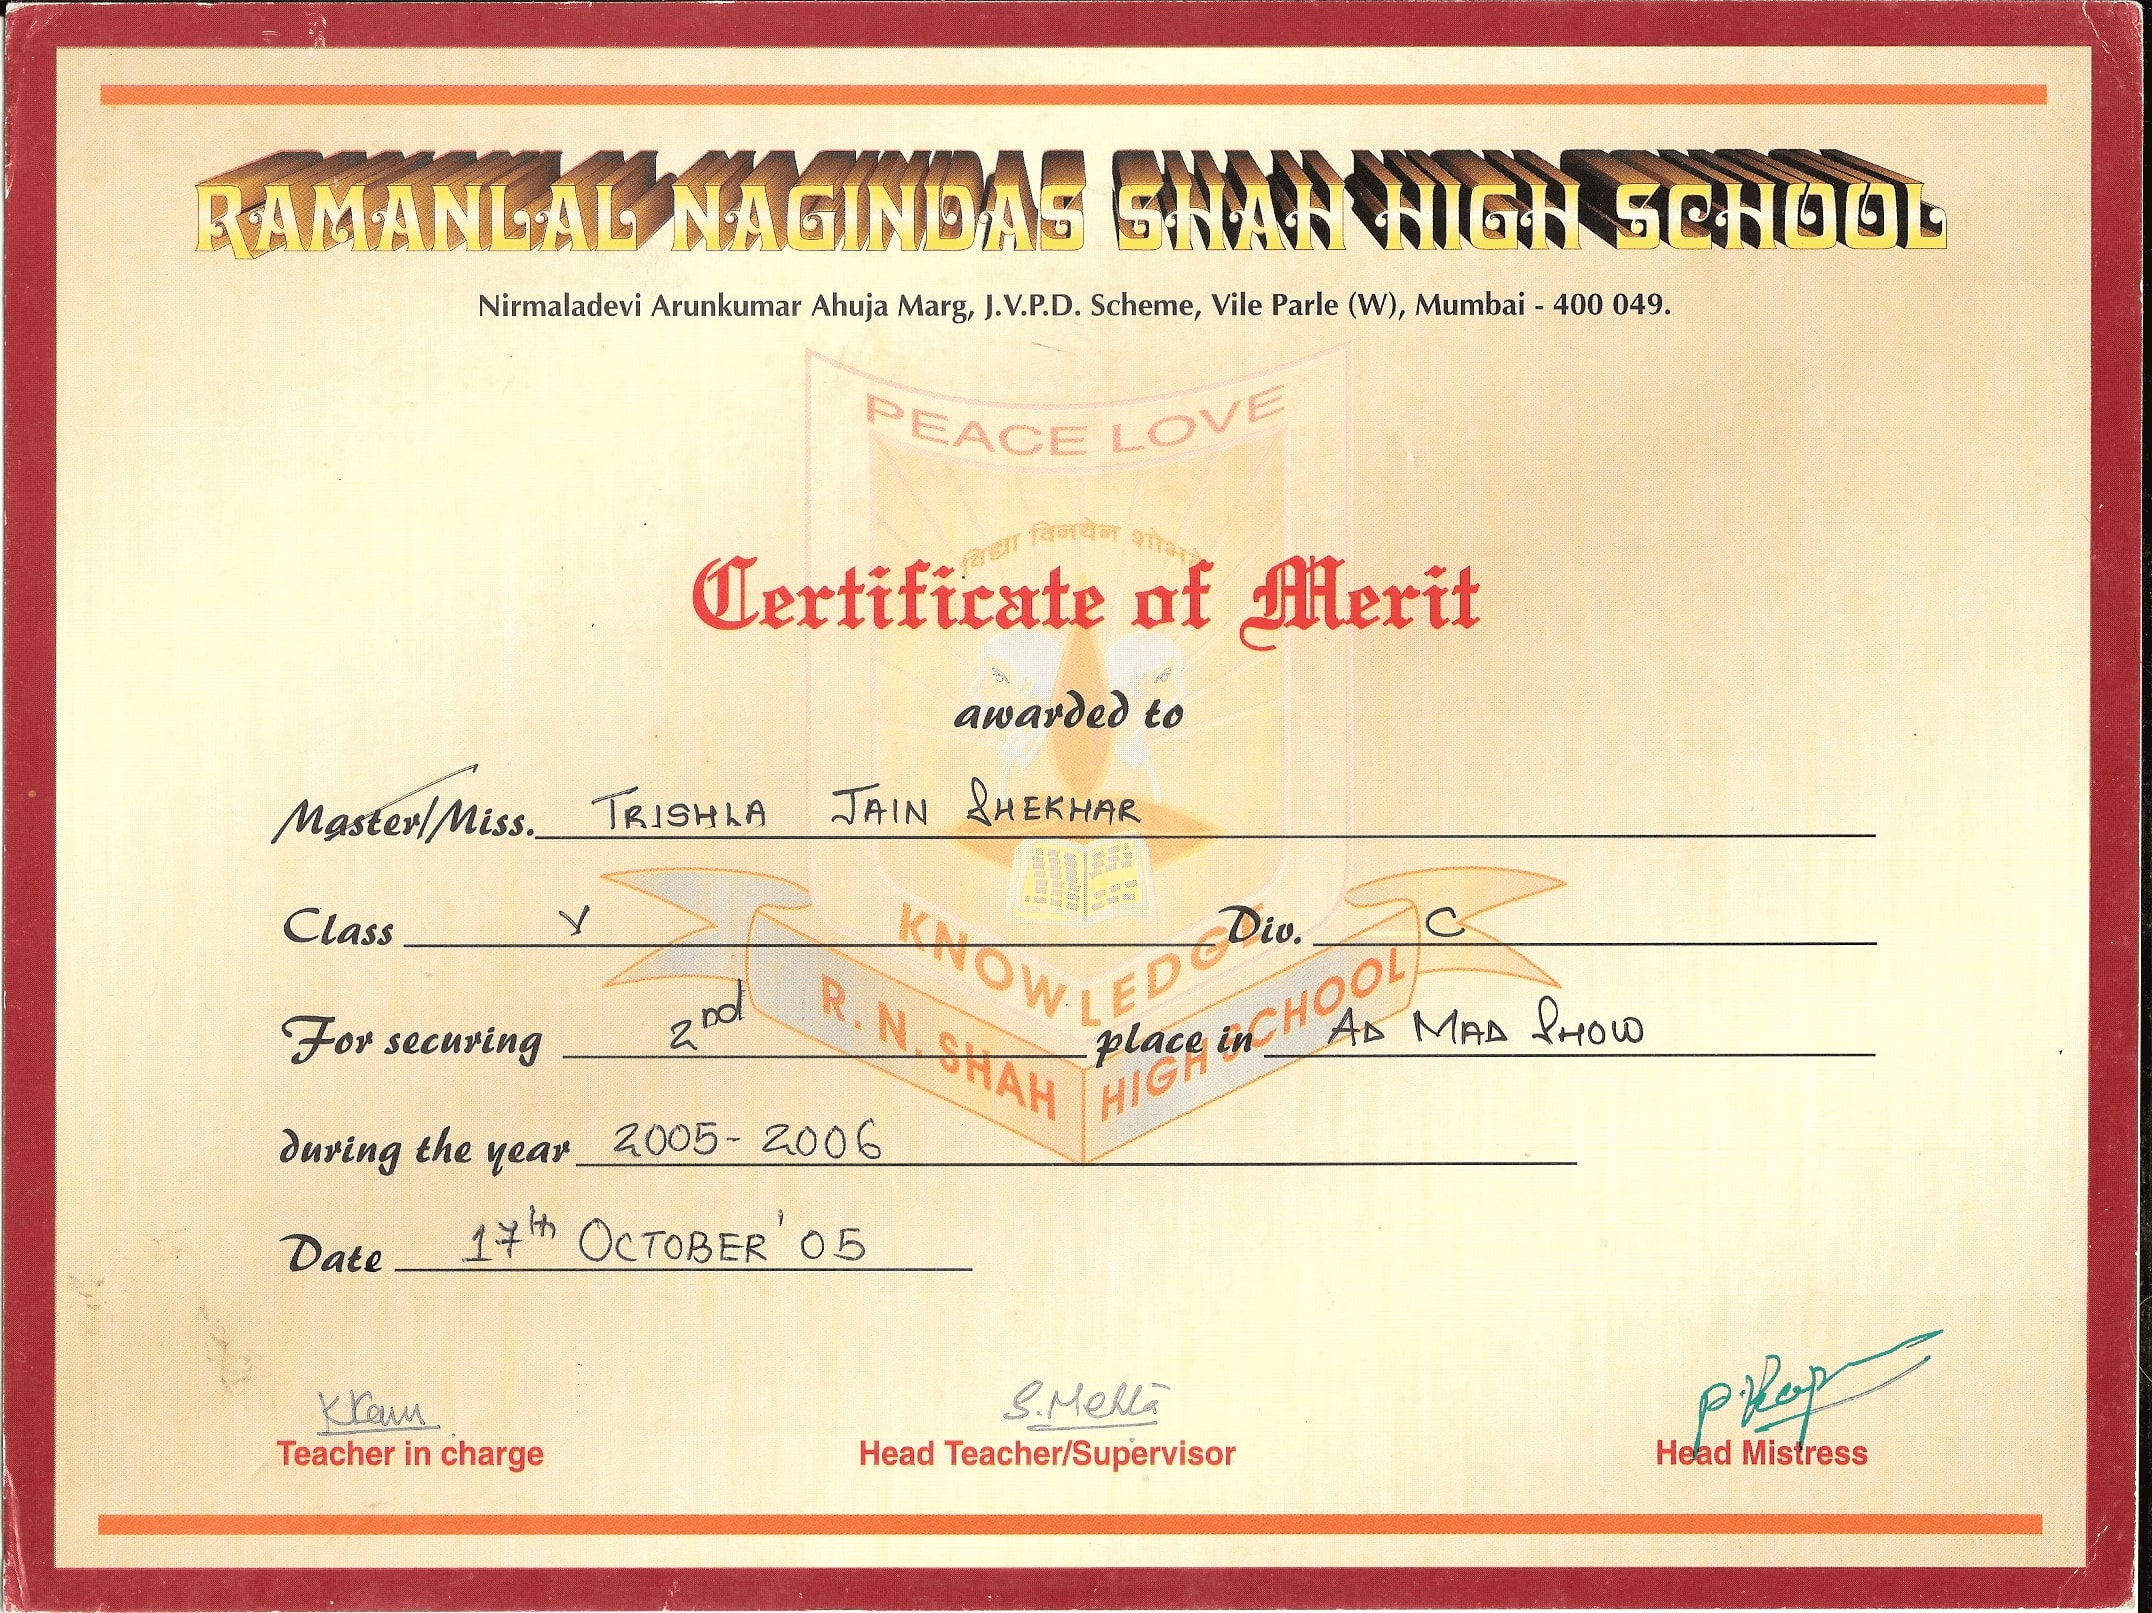 RAMANLAL NAGINDAS SHAH HIGH SCHOOL
Nirmaladevi Arunkumar Ahuja Marg, J.V.P.D. Scheme, Vile Parle (W), Mumbai - 400 049.
PEACE LOVE
विद्या विनयेन शोभते
Certificate of Merit
awarded to
Master/Miss. TRISHLA JAIN SHEKHAR
Class V Div. C
KNOWLEDGE
R. N. SHAH HIGH SCHOOL
For securing 2nd place in AD MAD SHOW
during the year 2005-2006
Date 17th OCTOBER '05
S. Mehta
Teacher in charge Head Teacher/Supervisor Head Mistress